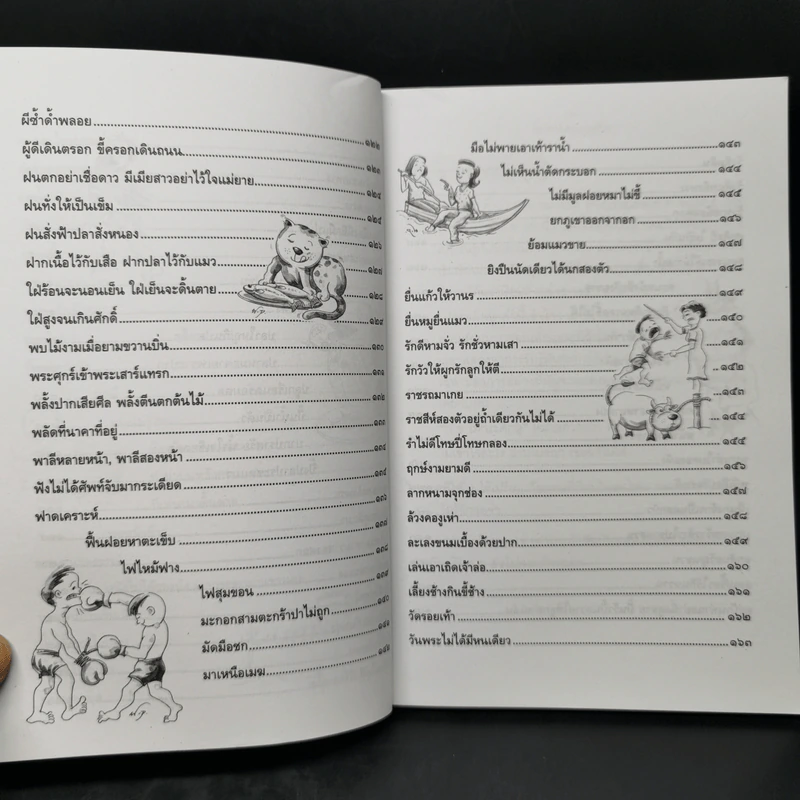 ผีซ้ำด้ำพลอย ๑๒๒
ผู้ดีเดินตรอก ขี้ครอกเดินถนน ๑๒๓
ฝนตกอย่าเชื่อดาว มีเมียสาวอย่าไว้ใจแม่ยาย ๑๒๔
ฝนทั่งให้เป็นเข็ม ๑๒๕
ฝนสั่งฟ้าปลาสั่งหนอง ๑๒๖
ฝากเนื้อไว้กับเสือ ฝากปลาไว้กับแมว ๑๒๗
ใฝ่ร้อนจะนอนเย็น ใฝ่เย็นจะดิ้นตาย ๑๒๘
ใฝ่สูงจนเกินศักดิ์ ๑๒๙
พบไม้งามเมื่อยามขวานบิ่น ๑๓๐
พระศุกร์เข้าพระเสาร์แทรก ๑๓๑
พลั้งปากเสียศีล พลั้งตีนตกต้นไม้ ๑๓๒
พลัดที่นาคาที่อยู่ ๑๓๓
พาลีหลายหน้า, พาลีสองหน้า ๑๓๔
ฟังไม่ได้ศัพท์จับมากระเดียด ๑๓๕
ฟาดเคราะห์ ๑๓๖
ฟื้นฝอยหาตะเข็บ ๑๓๗
ไฟไหม้ฟาง ๑๓๘
ไฟสุมขอน ๑๓๙
มะกอกสามตะกร้าปาไม่ถูก ๑๔๐
มัดมือชก ๑๔๑
มาเหนือเมฆ ๑๔๒
มือไม่พายเอาเท้าราน้ำ ๑๔๓
ไม่เห็นน้ำตัดกระบอก ๑๔๔
ไม่มีมูลฝอยหมาไม่ขี้ ๑๔๕
ยกภูเขาออกจากอก ๑๔๖
ย้อมแมวขาย ๑๔๗
ยิงปืนนัดเดียวได้นกสองตัว ๑๔๘
ยื่นแก้วให้วานร ๑๔๙
ยื่นหมูยื่นแมว ๑๕๐
รักดีหามจั่ว รักชั่วหามเสา ๑๕๑
รักวัวให้ผูกรักลูกให้ตี ๑๕๒
ราชรถมาเกย ๑๕๓
ราชสีห์สองตัวอยู่ถ้ำเดียวกันไม่ได้ ๑๕๔
รำไม่ดีโทษปี่โทษกลอง ๑๕๕
ฤกษ์งามยามดี ๑๕๖
ลากหนามจุกช่อง ๑๕๗
ล้วงคองูเห่า ๑๕๘
ละเลงขนมเบื้องด้วยปาก ๑๕๙
เล่นเอาเถิดเจ้าล่อ ๑๖๐
เลี้ยงช้างกินขี้ช้าง ๑๖๑
วัดรอยเท้า ๑๖๒
วันพระไม่ได้มีหนเดียว ๑๖๓